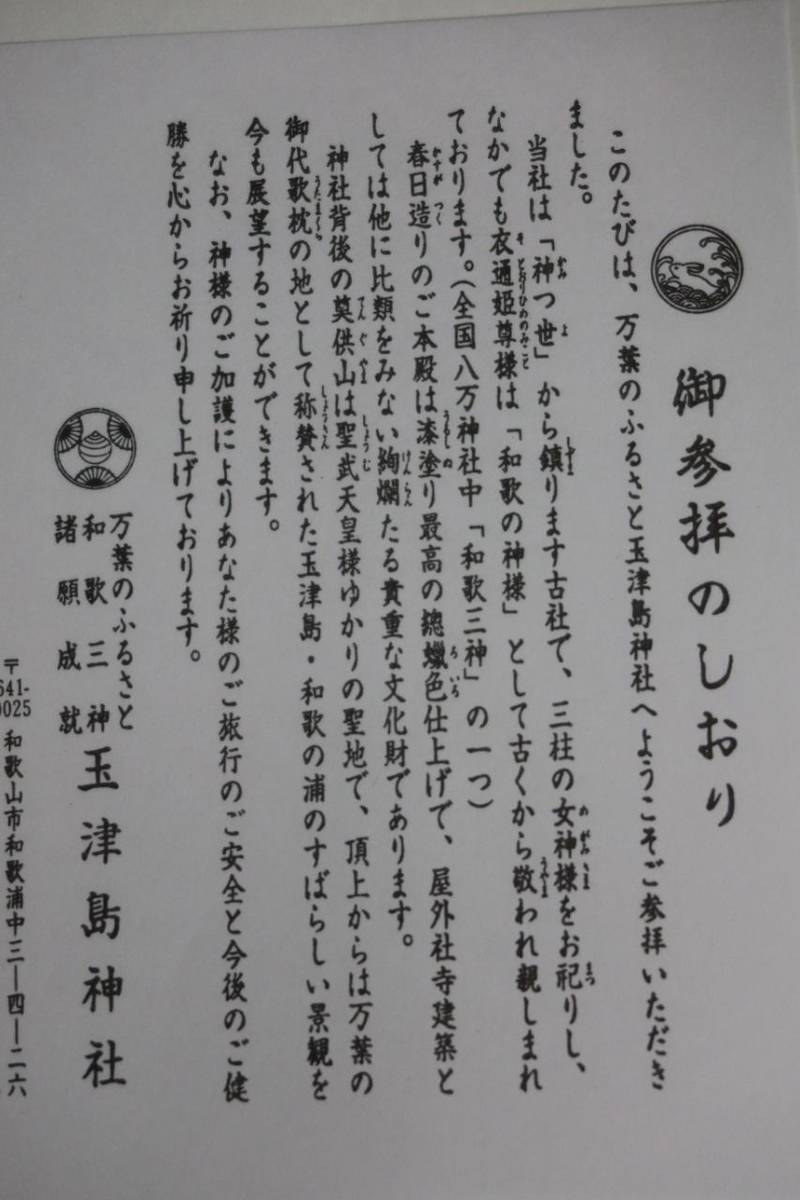 御参拝のしおり
このたびは、万葉のふるさと玉津島神社へようこそご参拝いただき
ました。
当社は「神つ世」から鎮ります古社で、三柱の女神様をお祀りし、
なかでも衣通姫尊様は「和歌の神様」として古くから敬われ親しまれ
ております。(全国八万神社中「和歌三神」の一つ)
春日造りのご本殿は漆塗り最高の總蠟色仕上げで、屋外社寺建築と
しては他に比類をみない絢爛たる貴重な文化財であります。
神社背後の奠供山は聖武天皇様ゆかりの聖地で、頂上からは万葉の
御代歌枕の地として称賛された玉津島・和歌の浦のすばらしい景観を
今も展望することができます。
なお、神様のご加護によりあなた様のご旅行のご安全と今後のご健
勝を心からお祈り申し上げております。
万葉のふるさと
和歌三神
諸願成就
玉津島神社
〒641-0025 和歌山市和歌浦中三―四―二六